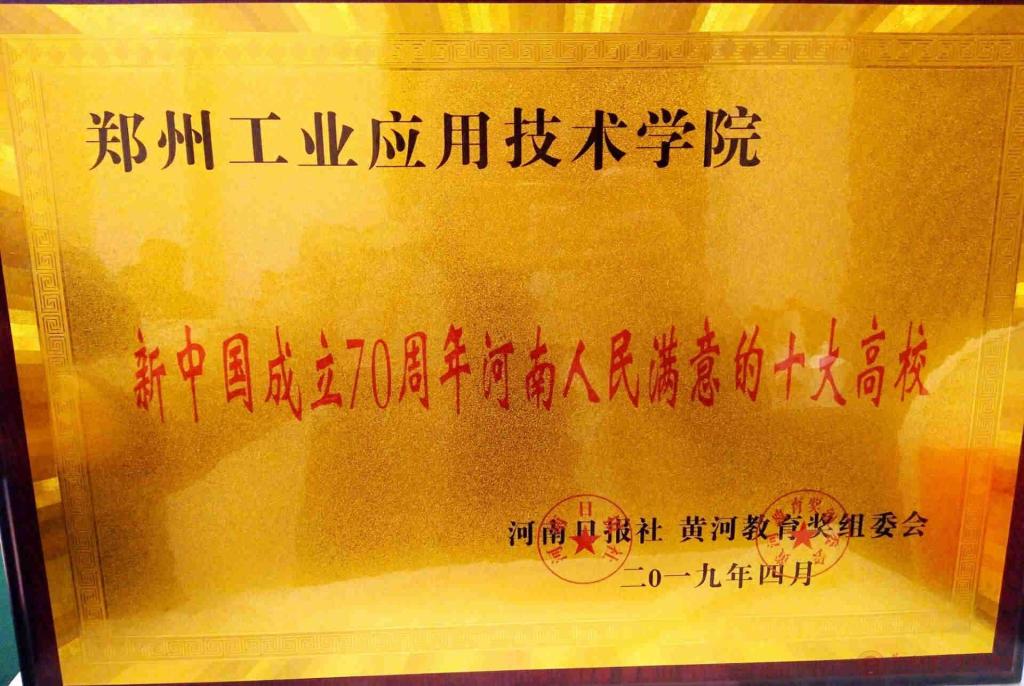 郑州工业应用技术学院
新中国成立70周年河南人民满意的十大高校
河南日报社 黄河教育奖组委会
二0一九年四月